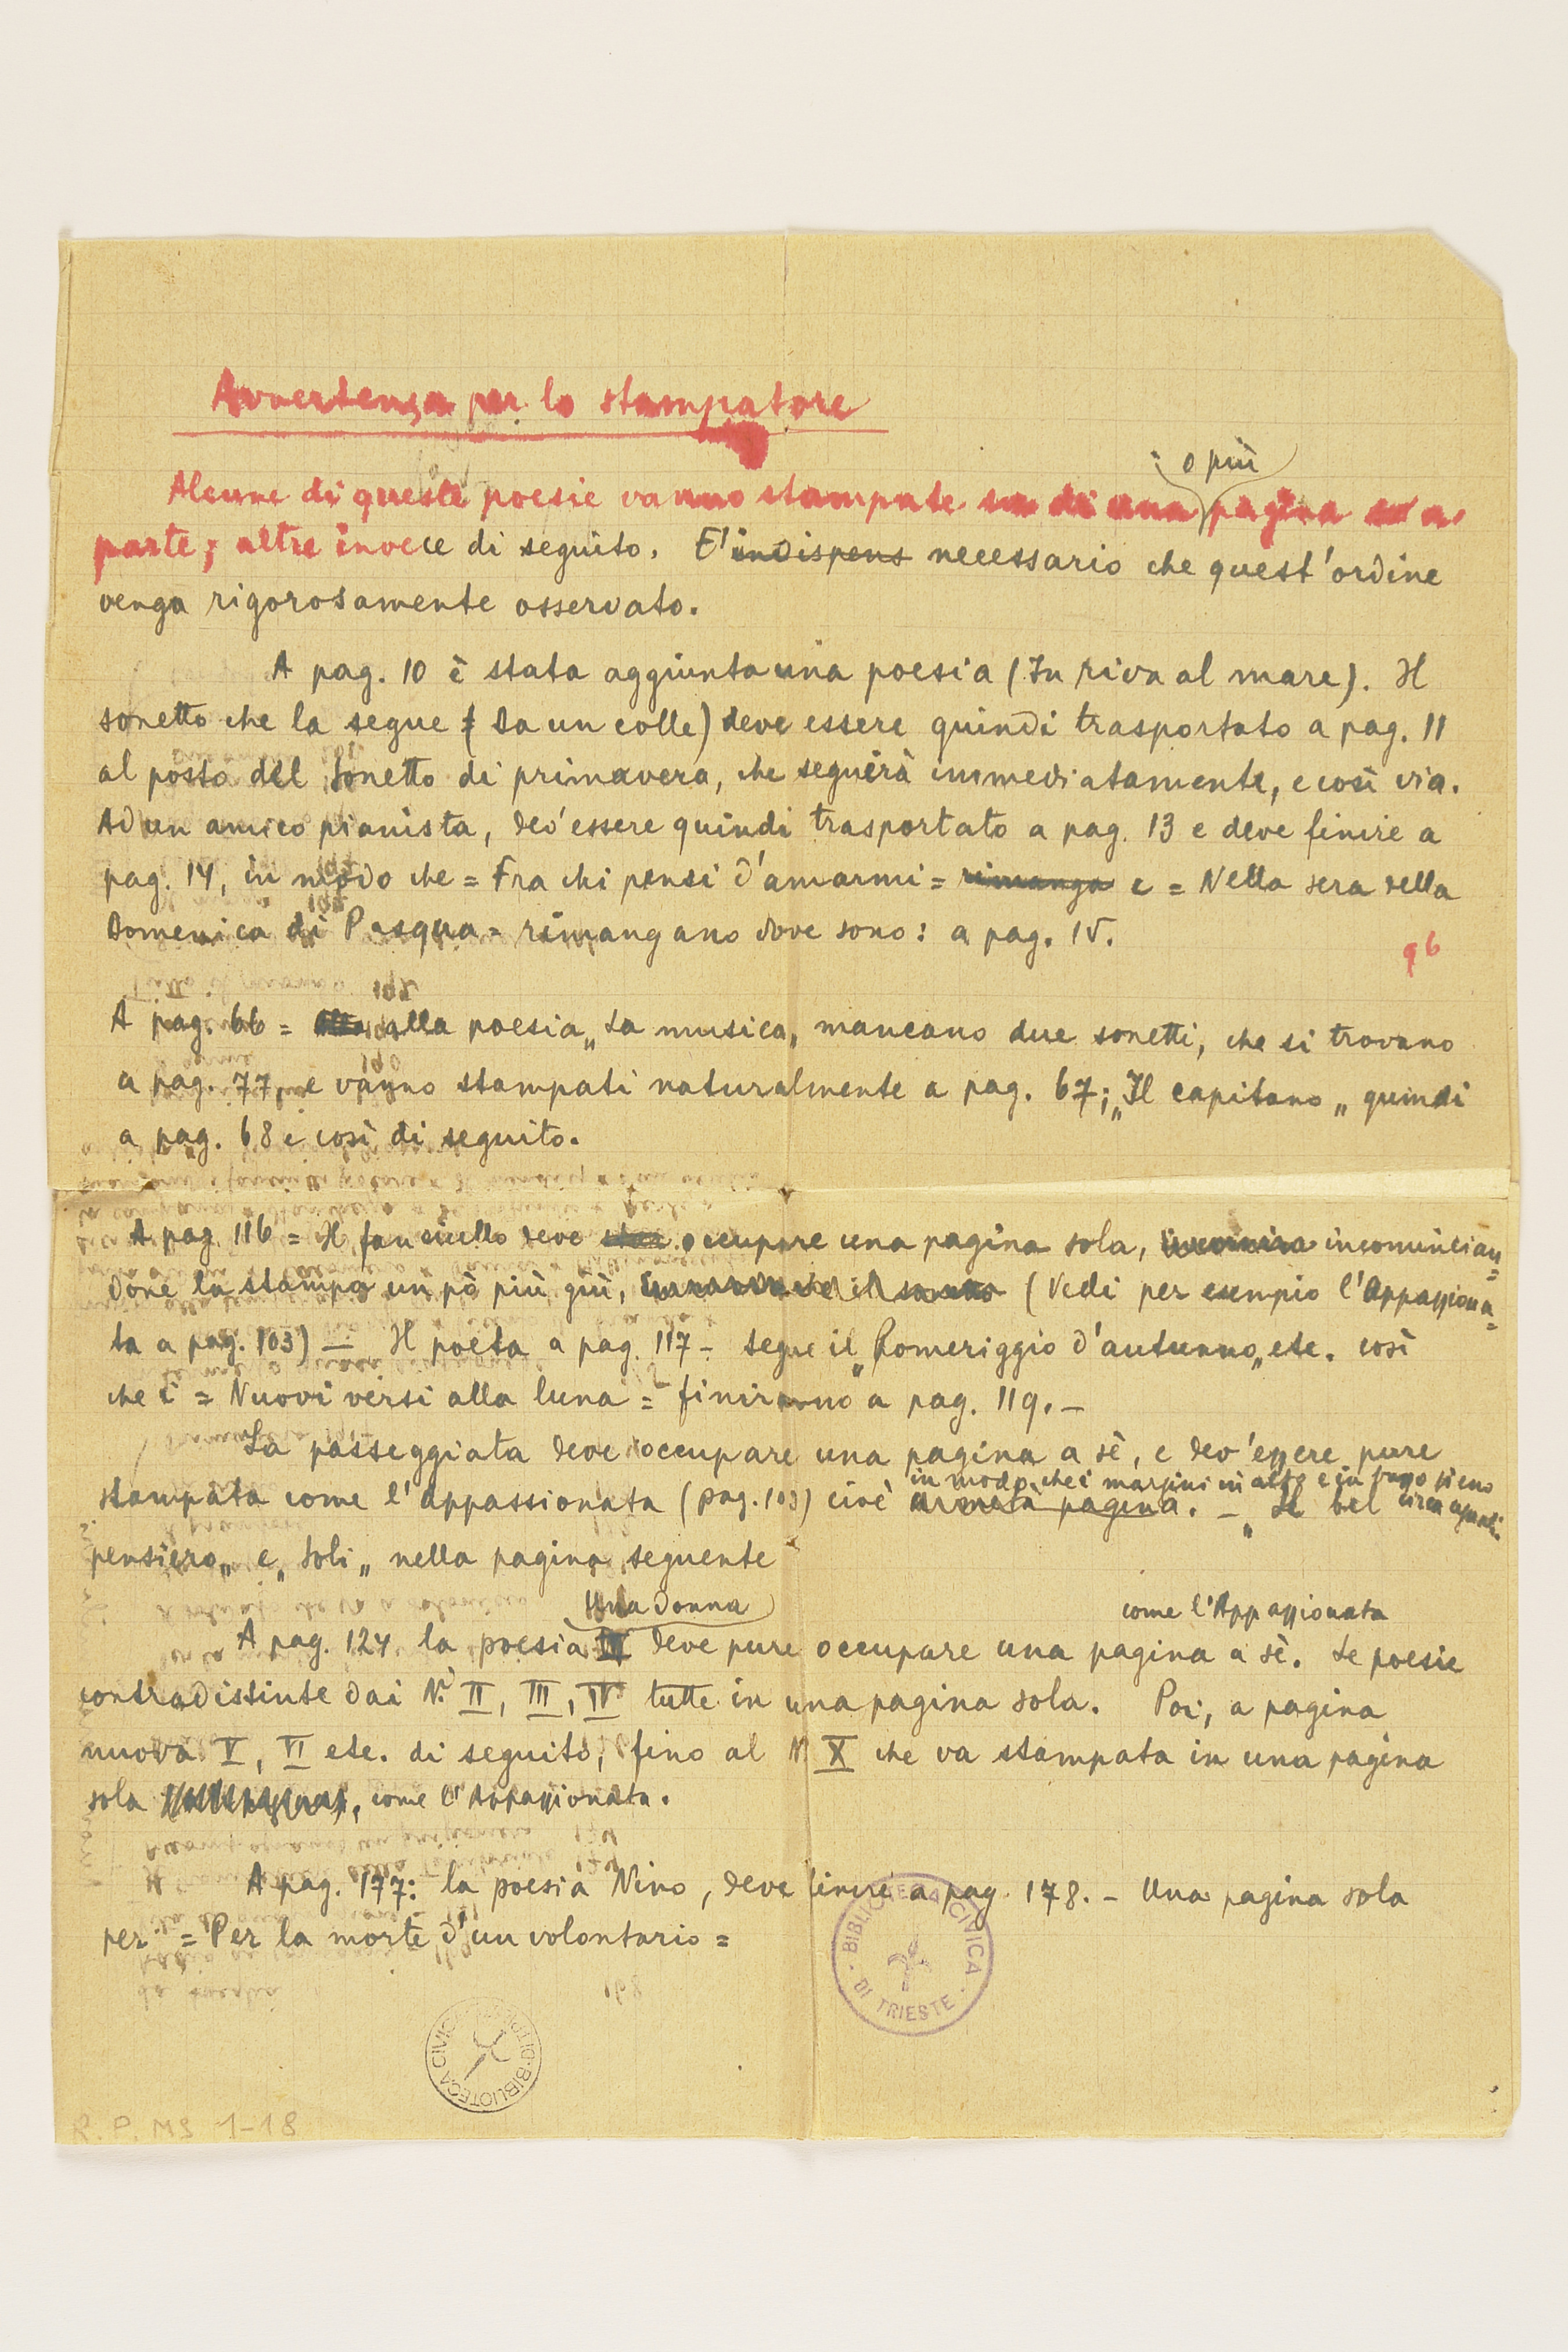 Avvertenza per lo stampatore
o più
Alcune di queste poesie vanno stampate su di una pagina a
parte; altre invece di seguito. E' indispens necessario che quest'ordine
venga rigorosamente osservato.
A pag. 10 è stata aggiunta una poesia (In riva al mare). Il
sonetto che la segue (Da un colle) deve essere quindi trasportato a pag. 11
al posto del Sonetto di primavera, che seguirà immediatamente, e così via.
Ad un amico pianista, dev'essere quindi trasportato a pag. 13 e deve finire a
pag. 14, in modo che = Fra chi pensi d'amarmi = rimanga e = Nella sera della
Domenica di Pasqua = rimangano dove sono: a pag. 15.
96
A pag. 66 = alla poesia „La musica„ mancano due sonetti, che si trovano
a pag. 77, e vanno stampati naturalmente a pag. 67; „Il capitano„ quindi
a pag. 68 e così di seguito.
A pag 116 = Il fanciullo deve occupare una pagina sola, incomincian=
done la stampa un pò più giù, (Vedi per esempio l'Appassiona=
ta a pag. 103) — Il poeta a pag. 117 – segue il „Pomeriggio d'autunno„ etc. così
che i = Nuovi versi alla luna = finiranno a pag. 119. –
La passeggiata deve occupare una pagina a sè, e dev'essere pure
in modo che i margini in alto e in basso sieno
stampata come l'appassionata (pag. 103) cioè a metà pagina. – „Il bel circa uguali
pensiero„ e „Soli„ nella pagina seguente
Una donna
come l'Appassionata
A pag. 124 la poesia deve pure occupare una pagina a sè. Le poesie
contradistinte dai N.i II, III, IV tutte in una pagina sola. Poi, a pagina
nuova V, VI etc. di seguito, fino al N. X che va stampata in una pagina
sola come l'Appassionata.
A pag. 177: la poesia Nino, deve finire a pag. 178. – Una pagina sola
per = Per la morte d'un volontario =
BIBLIOTECA CIVICA
DI TRIESTE
BIBLIOTECA CIVICA
R.P. MS 1-18